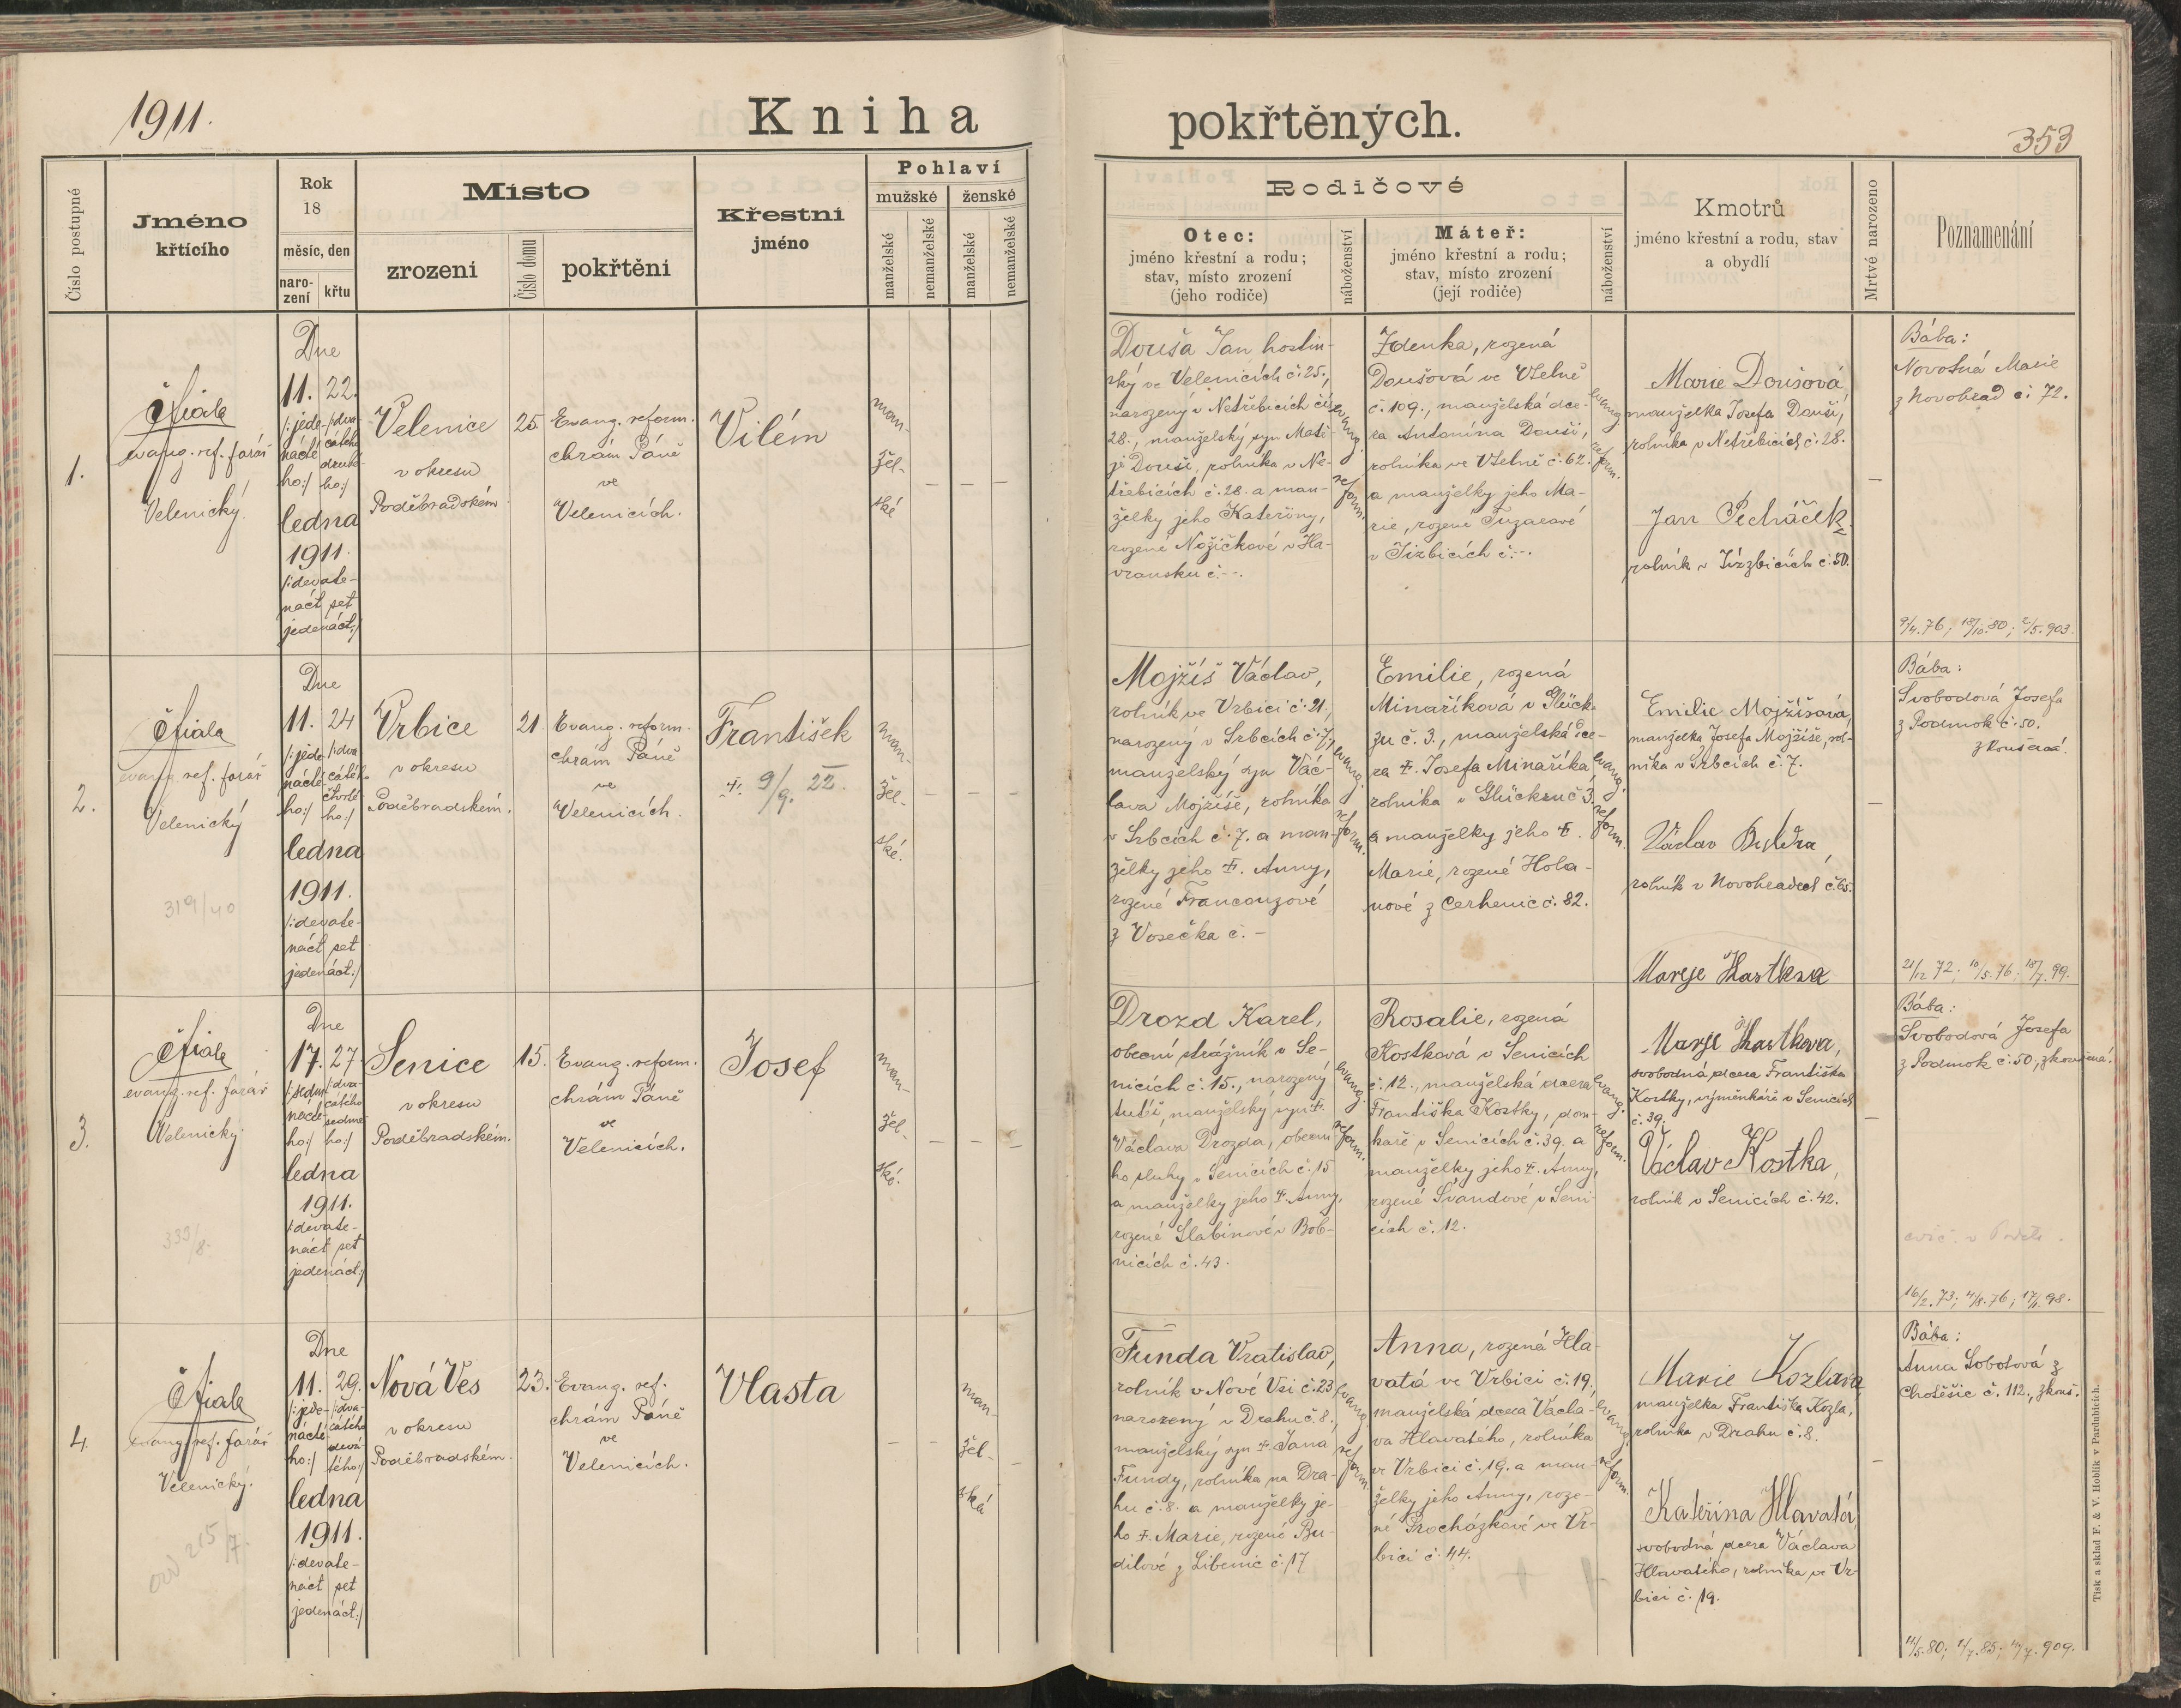 1911.
Kniha
pokřtěných.
353
Číslo postupné
Jméno
křtícího
Rok
18
měsíc, den
naro-
zení
křtu
Místo
zrození
Číslo domu
pokřtění
Křestní
jméno
Pohlaví
mužské
ženské
manželské
nemanželské
manželské
nemanželské
Rodičové
Otec:
jméno křestní a rodu;
stav, místo zrození
(jeho rodiče)
náboženství
Máteř:
jméno křestní a rodu;
stav, místo zrození
(její rodiče)
náboženství
Kmotrů
jméno křestní a rodu, stav
a obydlí
Mrtvě narozeno
Poznamenání
1.
ČFiala
evang. ref. farář
Velenický.
Dne
11. 22.
/:jede- /:dva-
nácté- cátého
ho:/ druhé-
ho:/
ledna
1911.
/:devate-
náct set
jedenáct:/
Velenice
v okresu
Poděbradském
25.
Evang. reform.
chrám Páně
ve
Velenicích.
Vilém
man-
žel-
ské
Douša Jan, hostin-
ský ve Velenicích č. 25.,
narozený v Netřebicích čís.
28., manželský syn Matě-
je Douši, rolníka v Ne-
třebicích č. 28. a man-
želky jeho Kateřiny,
rozené Nožičkové v Ha-
vransku č. --.
evang. reform.
Zdenka, rozená
Doušová ve Vtelně
č. 109., manželská dce-
ra Antonína Douši,
rolníka ve Vtelně č. 62.
a manželky jeho Ma-
rie, rozené Tuzarové
v Jizbicích č. --.
evang. reform.
Marie Doušová
manželka Josefa Douši,
rolníka v Netřebicích č. 28.
Jan Pecháček
rolník v Jízbicích č. 50.
Bába:
Novotná Marie
z Novohrad č. 72.
9/4. 76; 18/10. 80; 2/5. 903.
2.
ČFiala
evang. ref. farář
Velenický
319/40
Dne
11. 24
/:jede- /:dva
nácté- cátého
ho:/ čtvrté-
ho:/
ledna
1911.
/:devate-
náct set
jedenáct:/
Vrbice
v okresu
Poděbradském.
21.
Evang. reform.
chrám Páně
ve
Velenicích.
František
†. 9/9. 22.
man-
žel-
ské.
Mojžíš Václav,
rolník ve Vrbici č. 21.,
narozený v Srbcích č. 7,
manželský syn Vác-
lava Mojžíše, rolníka
v Srbcích č. 7. a man-
želky jeho †. Anny,
rozené Francouzové
z Vosečka č. -
evang. reform.
Emilie, rozená
Minaříková v Glück-
zu č. 3., manželská dce-
ra †. Josefa Minaříka,
rolníka v Glückzu č. 3.
a manželky jeho †.
Marie, rozené Hola-
nové z Cerhenic č. 82.
evang. reform.
Emilie Mojžíšová,
manželka Josefa Mojžíše, rol-
níka v Srbcích č. 7.
Václav
rolník v Novohradech č. 65.
Marye Kastková
Bába:
Svobodová Josefa
z Podmok č. 50.
zkoušená.
21/12. 72; 10/5. 76; 18/7. 99.
3.
ČFiala
evang. ref. farář
Velenický
333/8.
Dne
17. 27
/:sedm- /:dva-
nácté- cátého
ho:/ sedmé-
ho:/
ledna
1911.
/:devate-
náct set
jedenáct:/
Senice
v okresu
Poděbradském.
15.
Evang. reform.
chrám Páně
ve
Velenicích.
Josef
man-
žel-
ské.
Drozd Karel,
obecní strážník v Se-
nicích č. 15., narozený
tutéž, manželský syn †.
Václava Drozda, obecní-
ho sluhy v Senicích č. 15
a manželky jeho †. Anny,
rozené Slabinové v Bob-
nicích č. 43.
evang. reform.
Rosalie, rozená
Kostková v Senicích
č. 12., manželská dcera
Františka Kostky, dom-
kaře v Senicích č. 39. a
manželky jeho †. Anny,
rozené Švandové v Seni-
cích č. 12.
evang. reform.
Marye Kastkova,
svobodná dcera Františka
Kostky, výměnkáře v Senicích
č. 39.
Václav Kostka,
rolník v Senicích č. 42.
Bába:
Svobodová Josefa
z Podmok č. 50, zkoušená.
16/2. 73; 4/8. 76; 17/1. 98.
4.
ČFiala
evang. ref. farář
Velenický.
215/7.
Dne
11. 29.
/:jede- /:dva-
nácté- cátého
ho:/ devá-
tého:/
ledna
1911.
/:devate-
náct set
jedenáct:/
Nová Ves
v okresu
Poděbradském.
23.
Evang. ref.
chrám Páně
ve
Velenicích.
Vlasta
man-
žel-
ská
Funda Vratislav,
rolník v Nové Vsi č. 23
narozený v Drahu č. 8.,
manželský syn † Jana
Fundy, rolníka na Dra-
hu č. 8. a manželky je-
ho †. Marie, rozené Bu-
dilové z Libenic č. 17
evang. reform.
Anna, rozená Hla-
vatá ve Vrbici č. 19.,
manželská dcera Václa-
va Hlavatého, rolníka
ve Vrbici č. 19. a man-
želky jeho Anny, roze-
né Procházkové ve Vr-
bici č. 44.
evang. reform.
Marie Kozlová
manželka Františka Kozla,
rolníka v Drahu č. 8.
Kateřina Hlavatá,
svobodná dcera Václava
Hlavatého, rolníka ve Vr-
bici č. 19.
Bába:
Anna Sobotová z
Chotěšic č. 112., zkouš.
11/5. 80; 1/7. 85; 11/7. 909.
Tisk a sklad F. & V. Hoblík v Pardubicích.